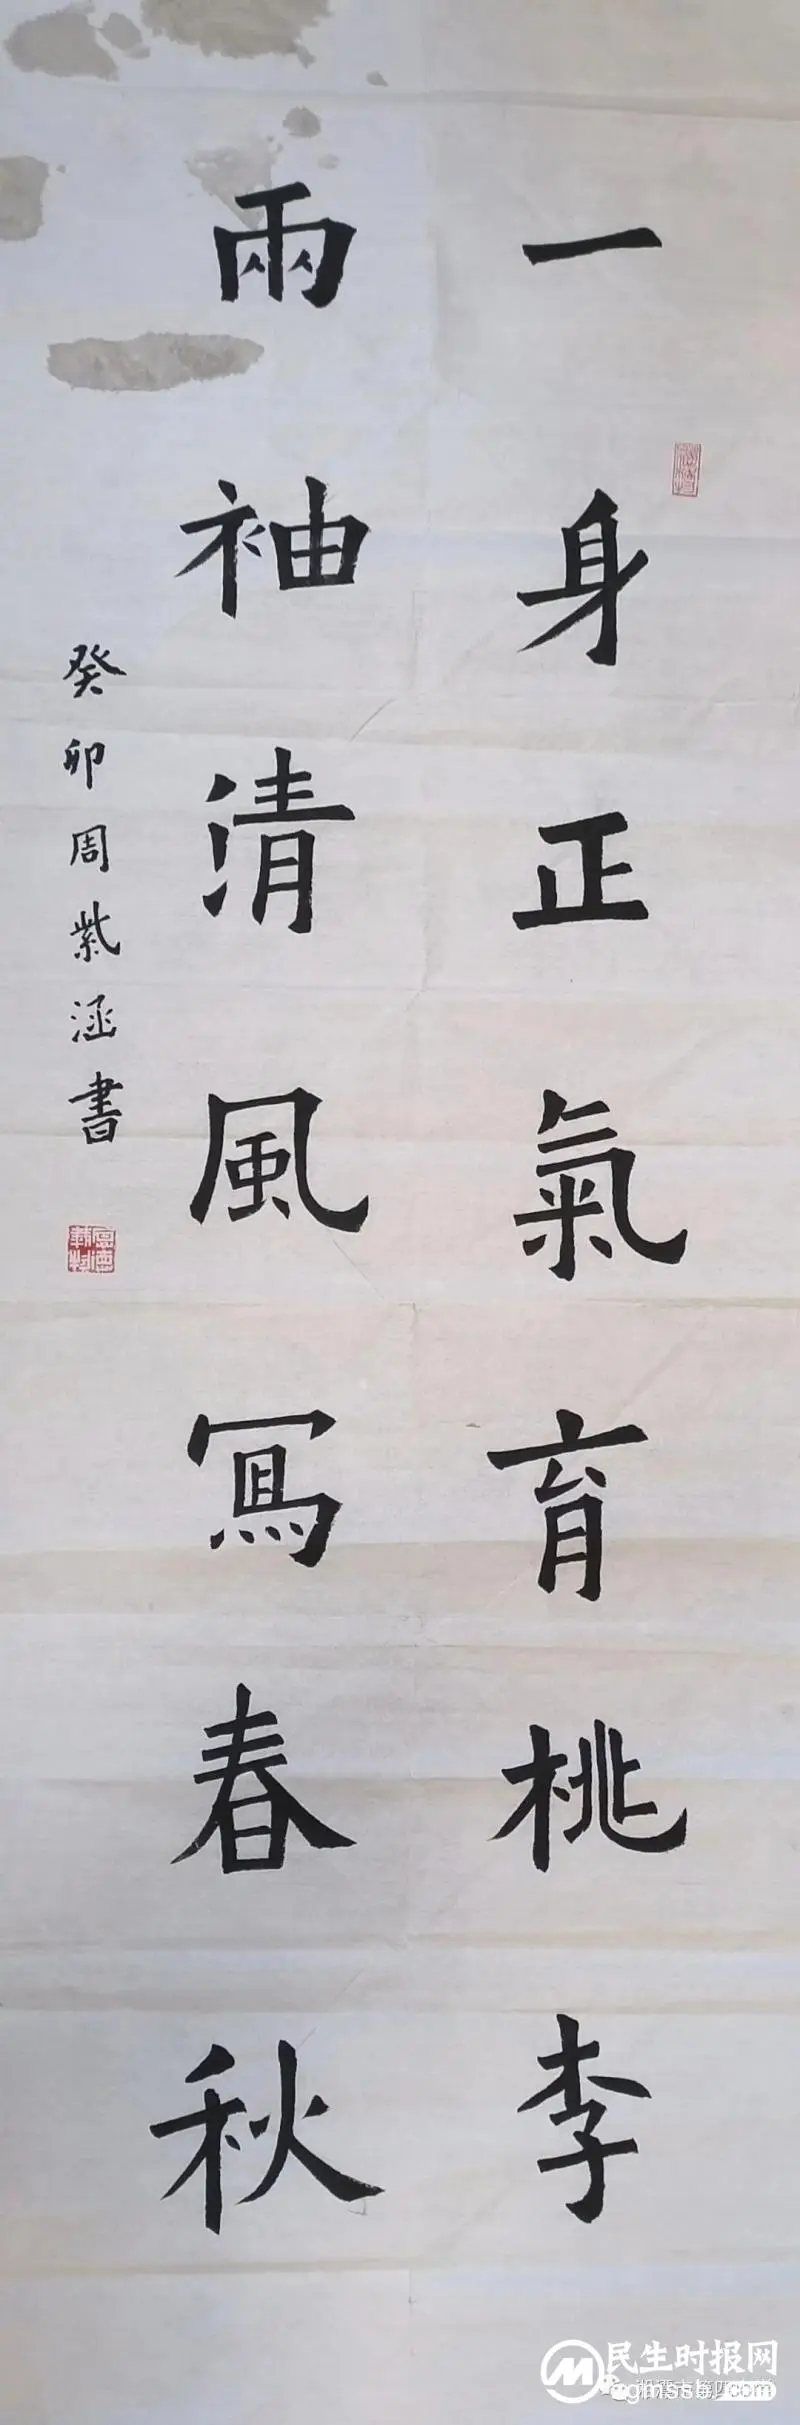 一身正氣育桃李
兩袖清風寫春秋
癸卯周紫涵書
厚德載物
民生时报网
gmssb.com